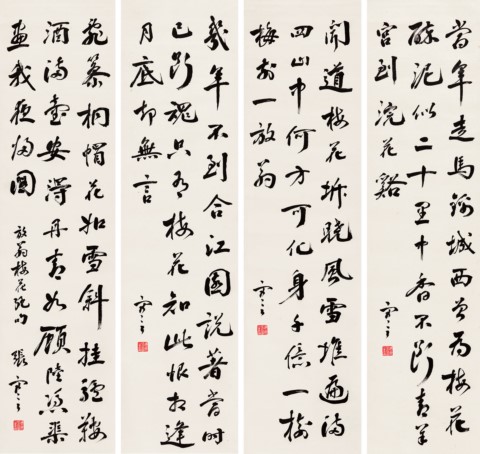 當年走馬錦城西曾為梅花
醉泥似二十里中香不斷青羊
宮到浣花谿
聞道梅花坼曉風雪堆遍滿
四山中何方可化身千億一樹
梅前一放翁
幾年不到合江園說著當時
已斷魂只有梅花知此恨相逢
月底却無言
亂篸桐帽花如雪斜挂驢鞍
酒滿壺安得丹青如顧陸憑渠
畫我夜歸圖
放翁梅花絕句 張